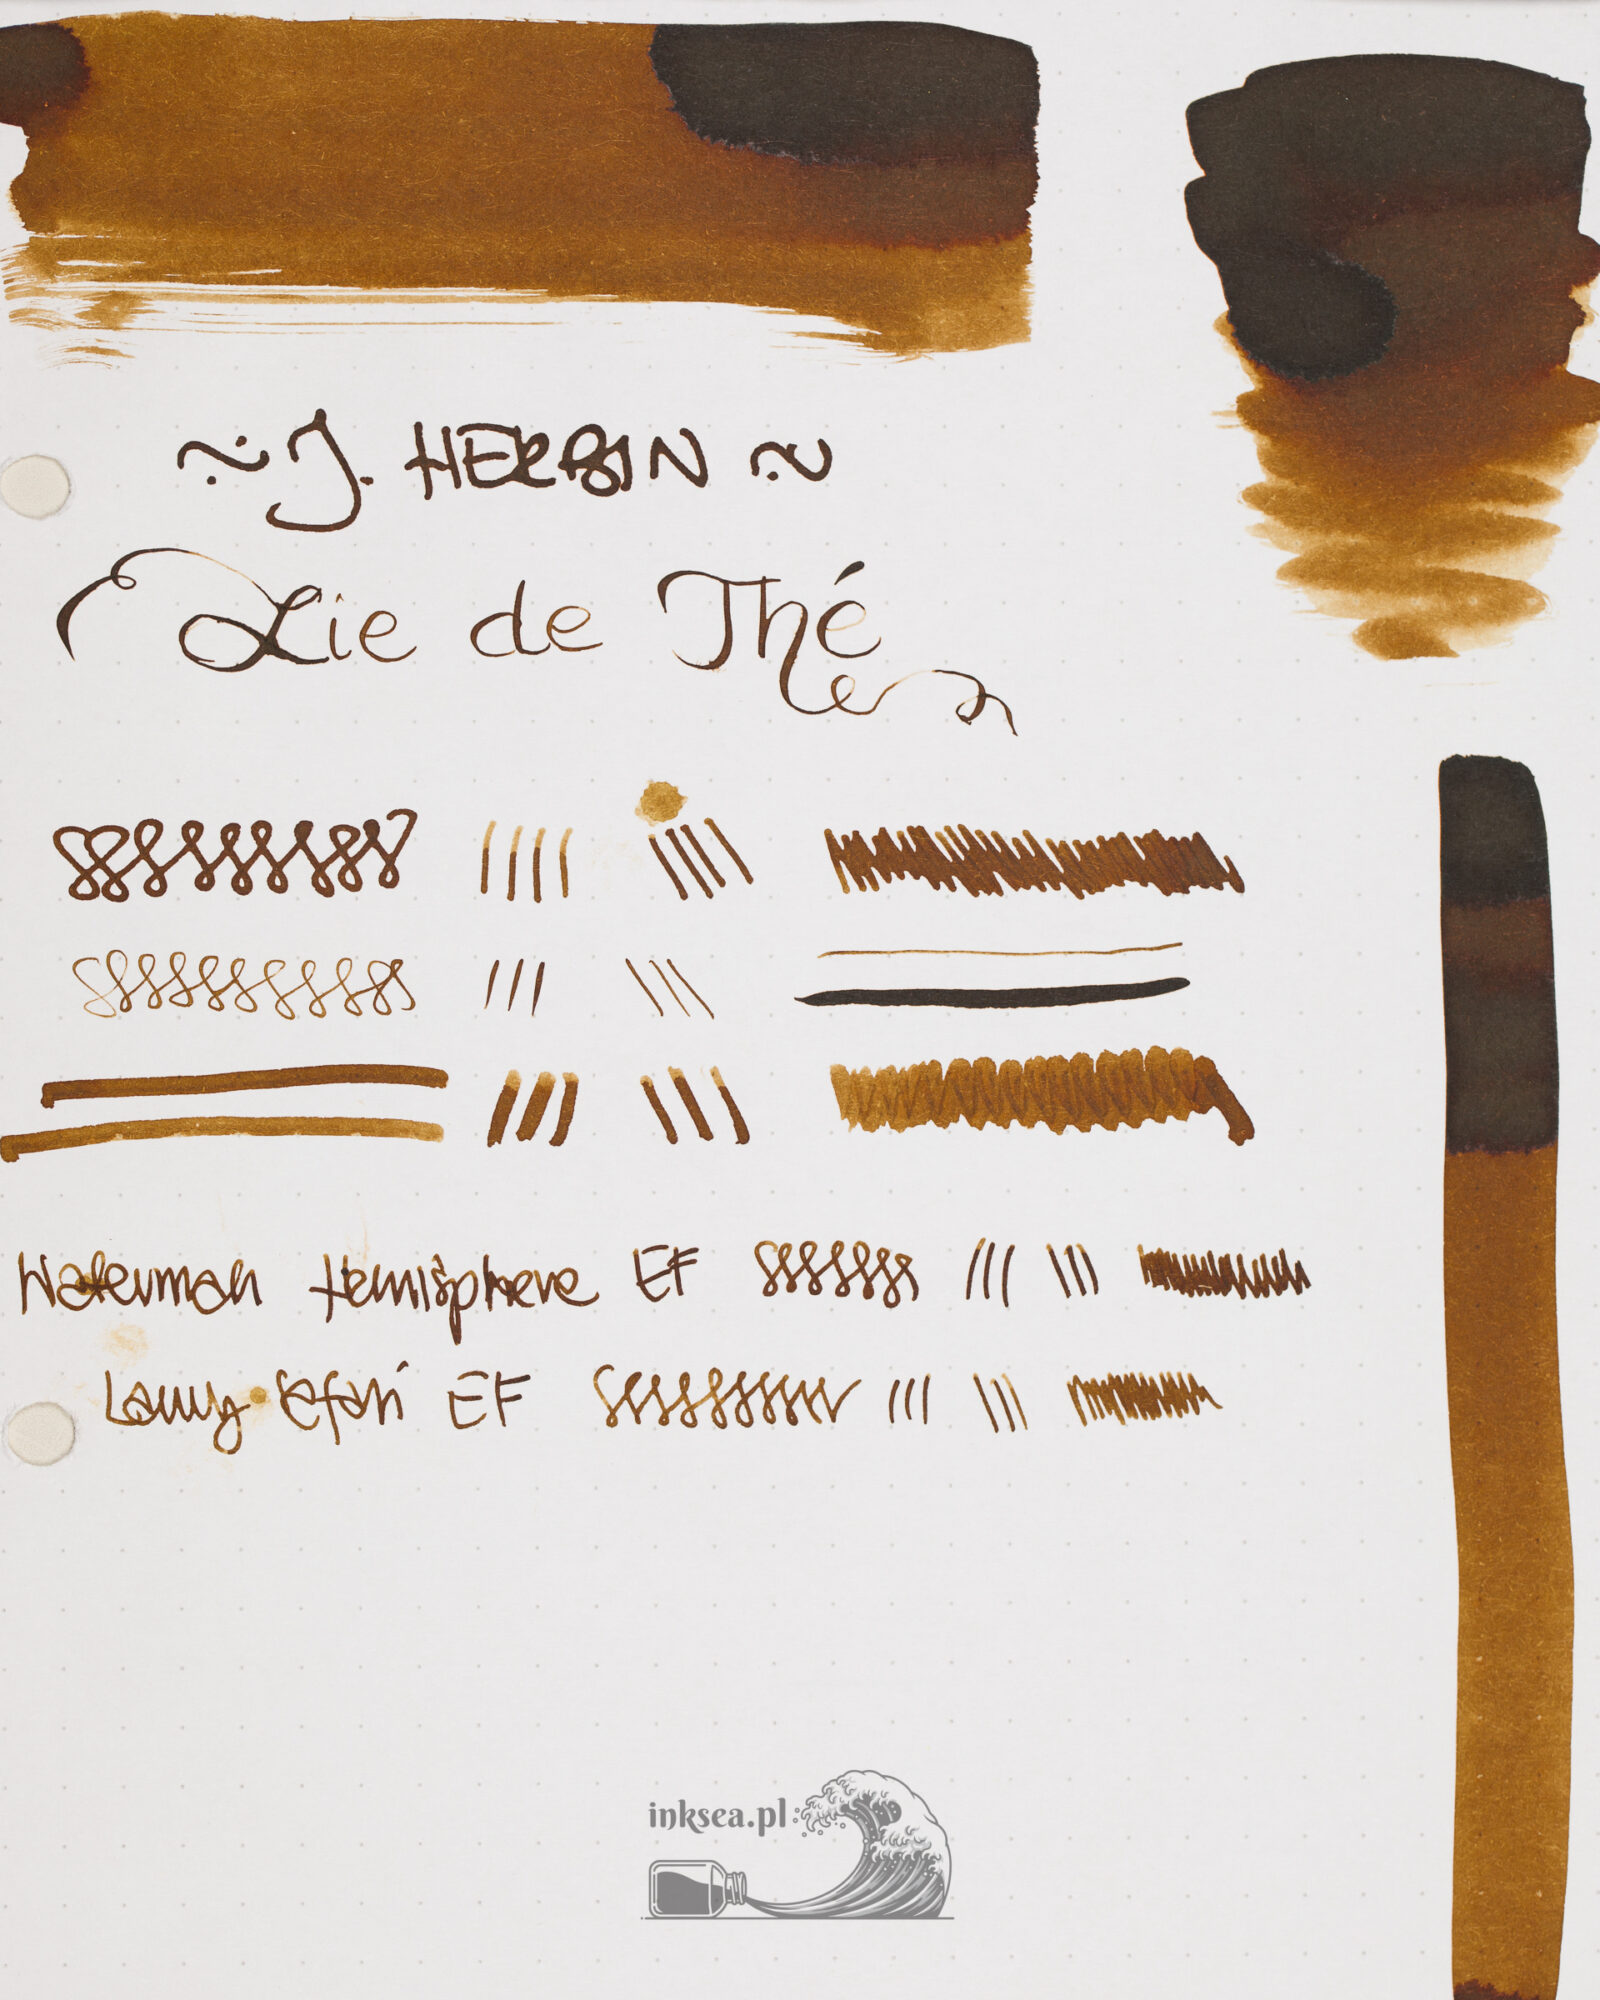 ~ J. HERBIN ~
Lie de Thé
Waterman Hemisphere EF
Lamy Safari EF
inksea.pl